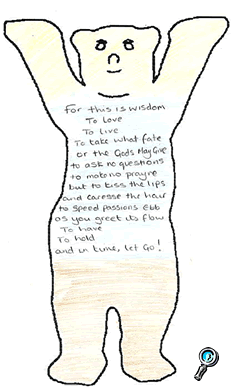 For this is wisdom
To Love
To live
To take what fate
or the Gods May Give
to ask no questions
to make no prayre
but to kiss the lips
and caresse the hair
to speed passions ebb
as you greet its flow
To have
To hold
and in time, let Go!